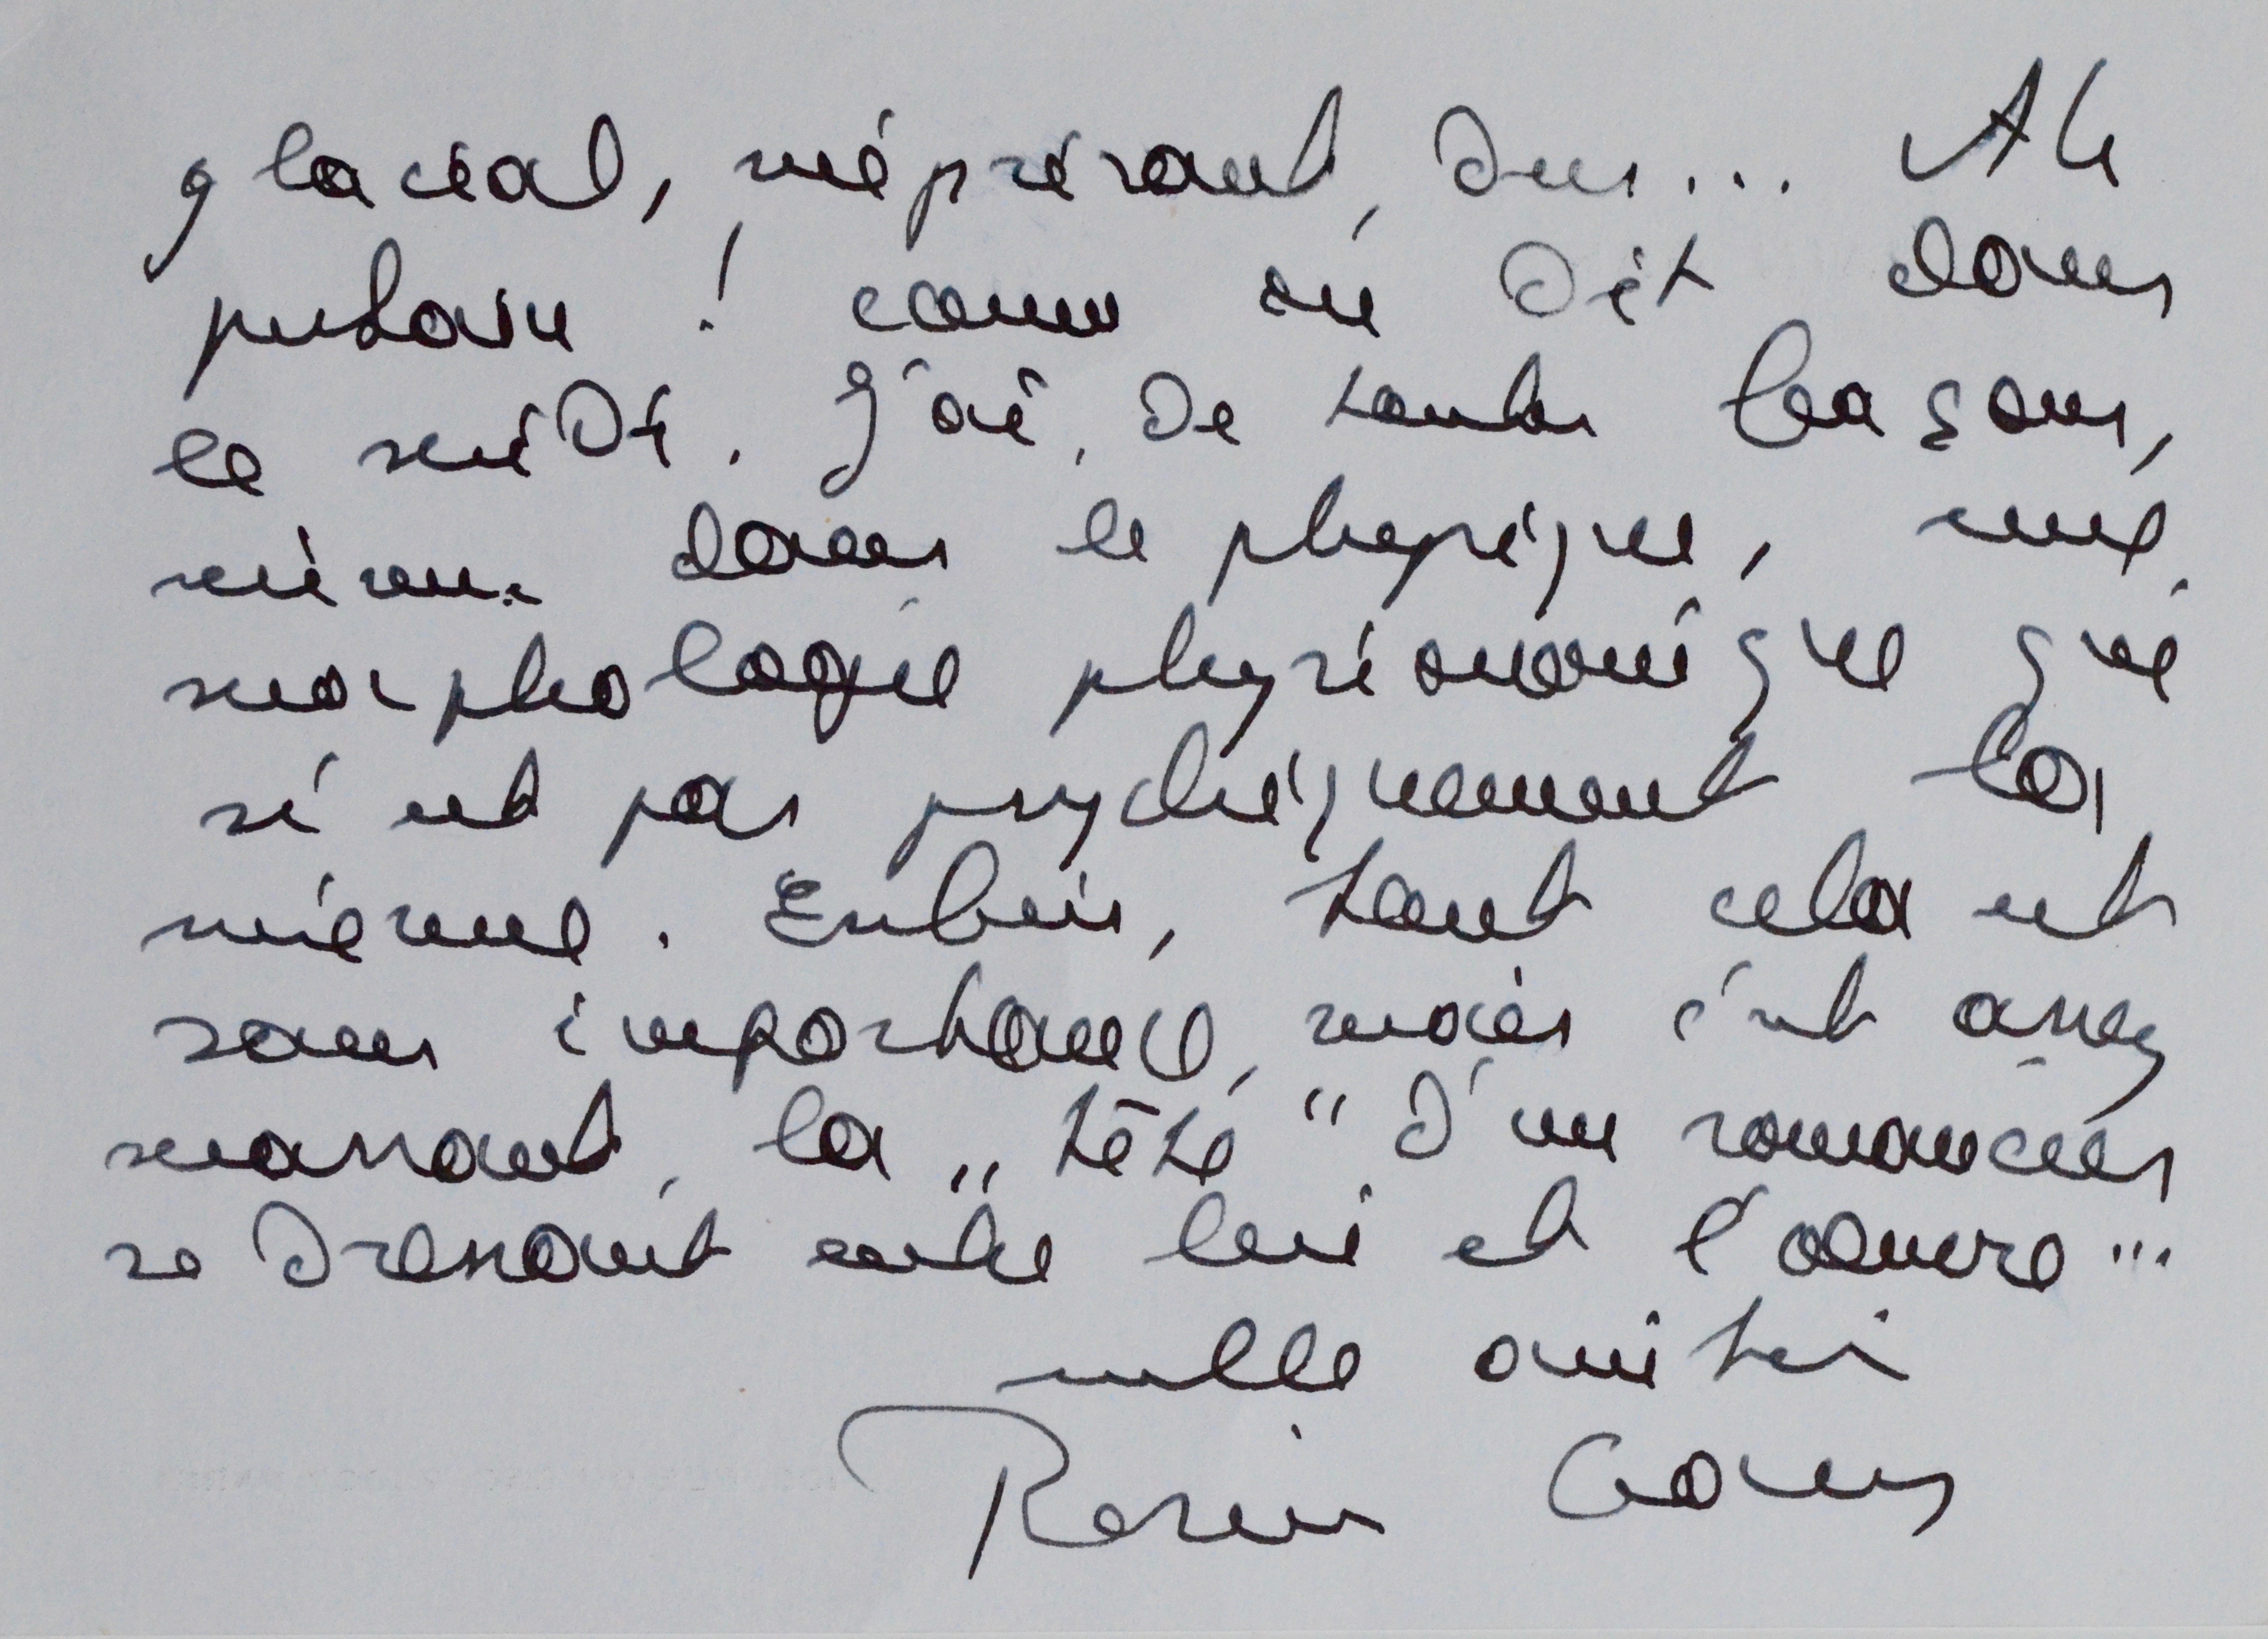 glacial, méprisant, dur... Ah
putain ! comme on dit dans
le midi. J'ai, de toutes façons,
même dans le physique, une
morphologie physionomique qui
n'est pas psychiquement la
mienne. Enfin, tout cela est
sans importance, mais c'est assez
marrant, la "tête" d'un romancier
se dressant entre lui et l'oeuvre...
mille amitiés
Romain Gary